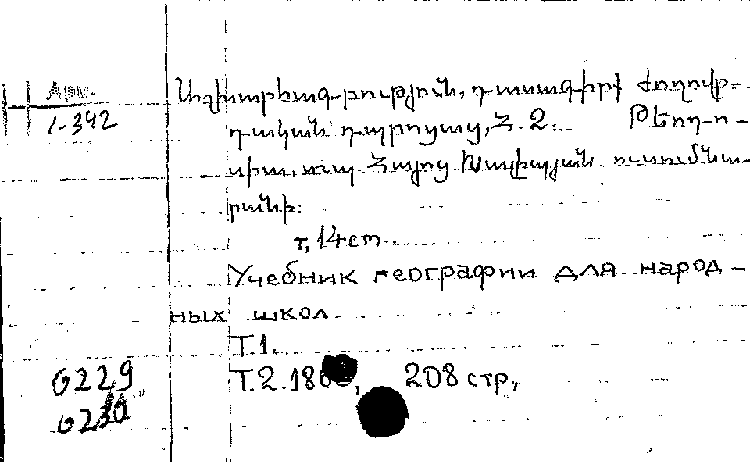 Арм.
1-342
Աշխարհագրություն, դասագիրք ժողովր-
դական դպրոցաց, Հ. 2. Թեոդո-
սիա, տպ Հայոց Խալիպյան ուսումնա-
րանի:
т, 14 см
Учебник географии для народ-
ных школ
Т.1.
6229 Т.2. 208 стр,